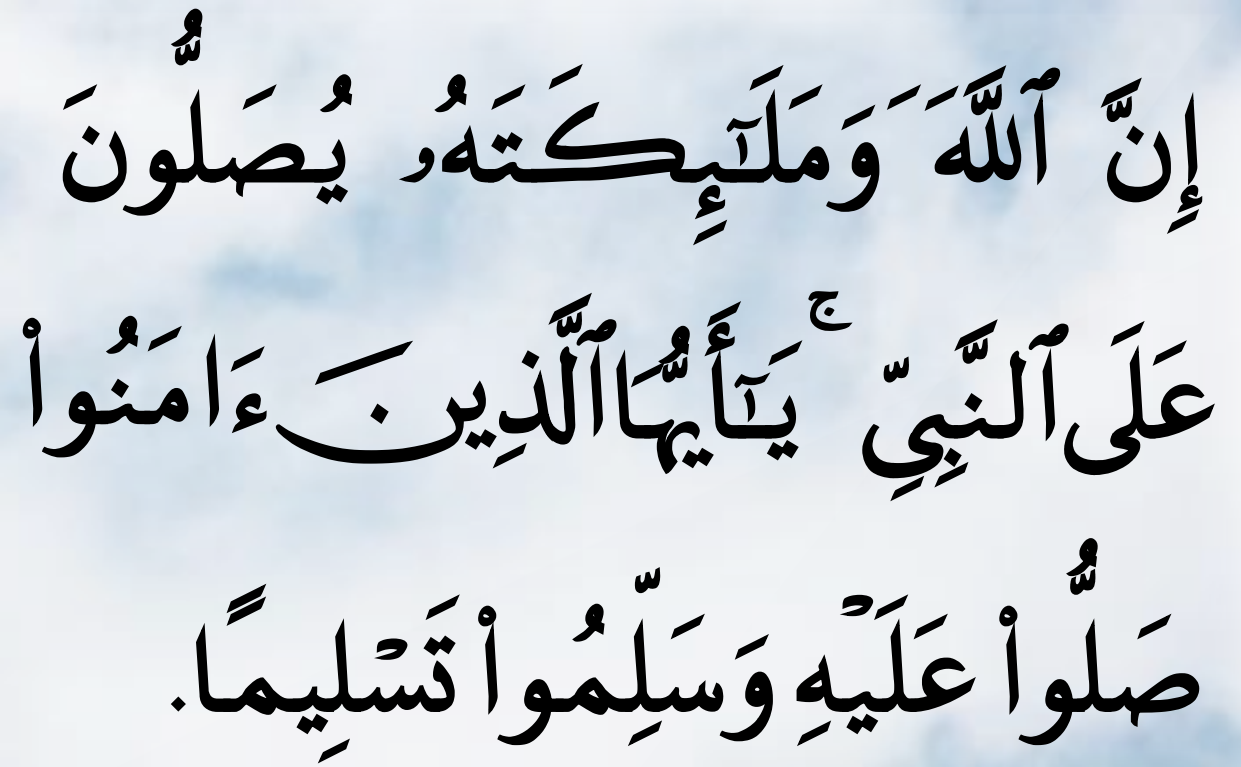 إِنَّ ٱللَّهَ وَمَلَـٰٓئِكَتَهُۥ يُصَلُّونَ
عَلَى ٱلنَّبِىِّ ۚ يَـٰٓأَيُّهَا ٱلَّذِينَ ءَامَنُوا۟
صَلُّوا۟ عَلَيْهِ وَسَلِّمُوا۟ تَسْلِيمًا.